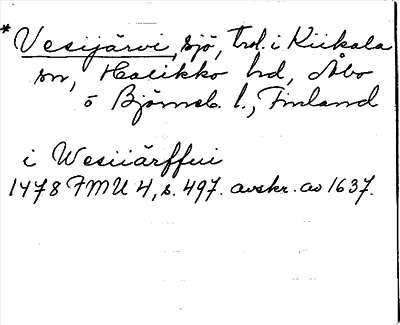 *Vesijärvi, sjö, trol. i Kiikala
sn, Halikko hd, Åbo
o Björneb. l., Finland
i Wesiiärffui
1478 FMU 4, s. 497. avskr. av 1637.